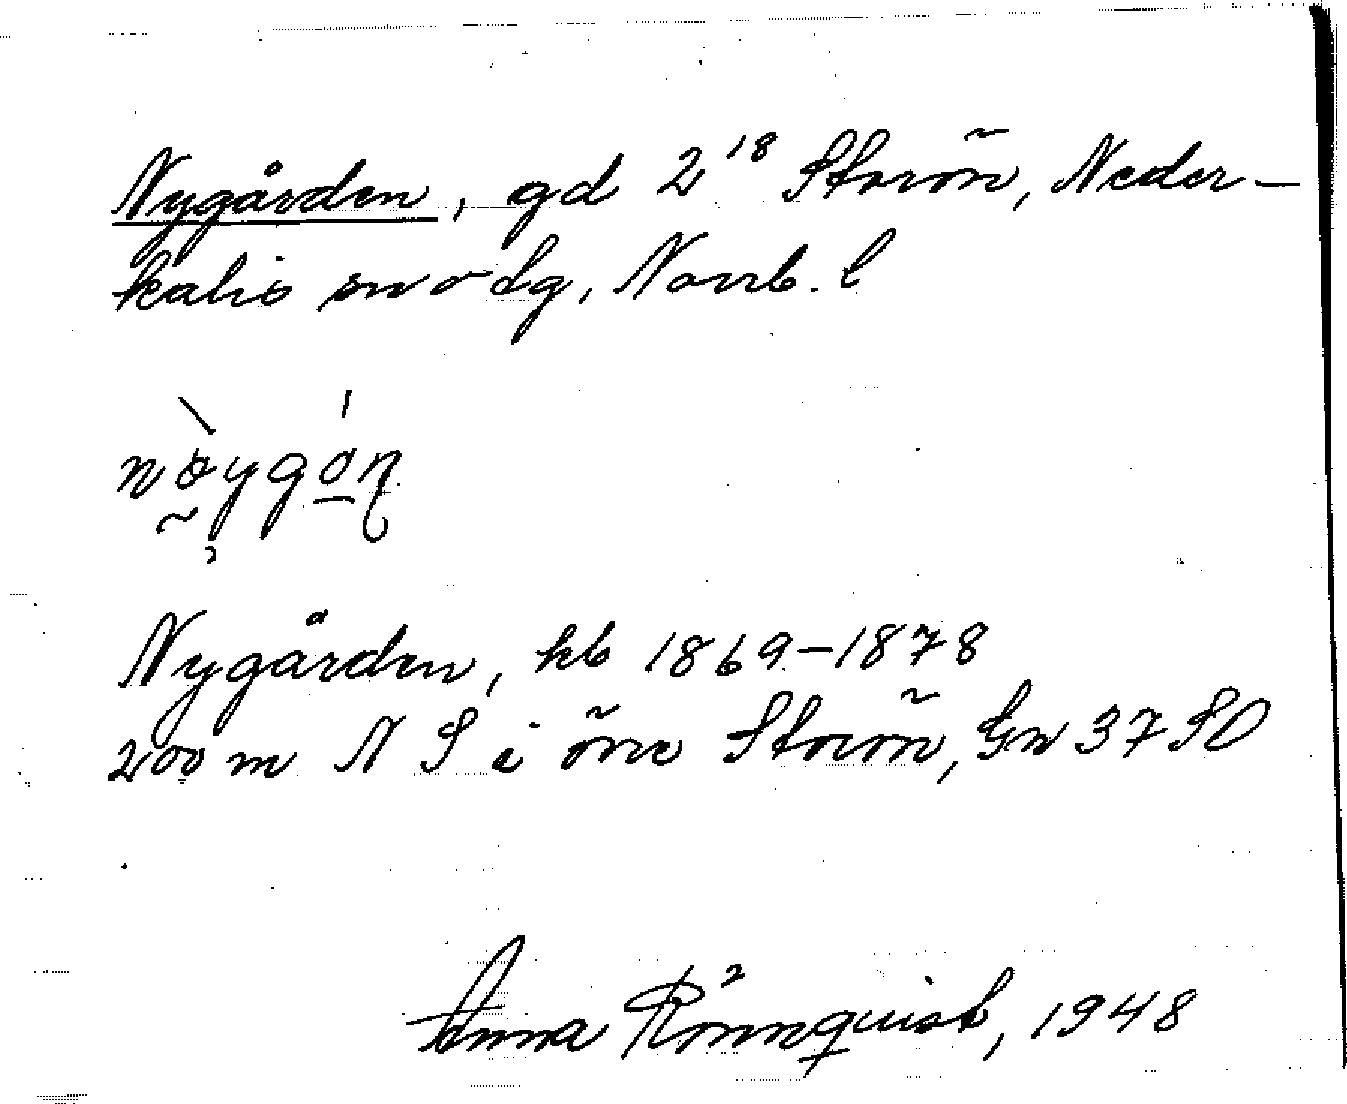 Nygården, gd 2¹⁸ Storön, Neder-
kalix sn o tg, Norrb. l
Nygården, kb 1869–1878
200 m N S i önre Storön, Gn 37 SO
Anna Rönnqvist, 1948